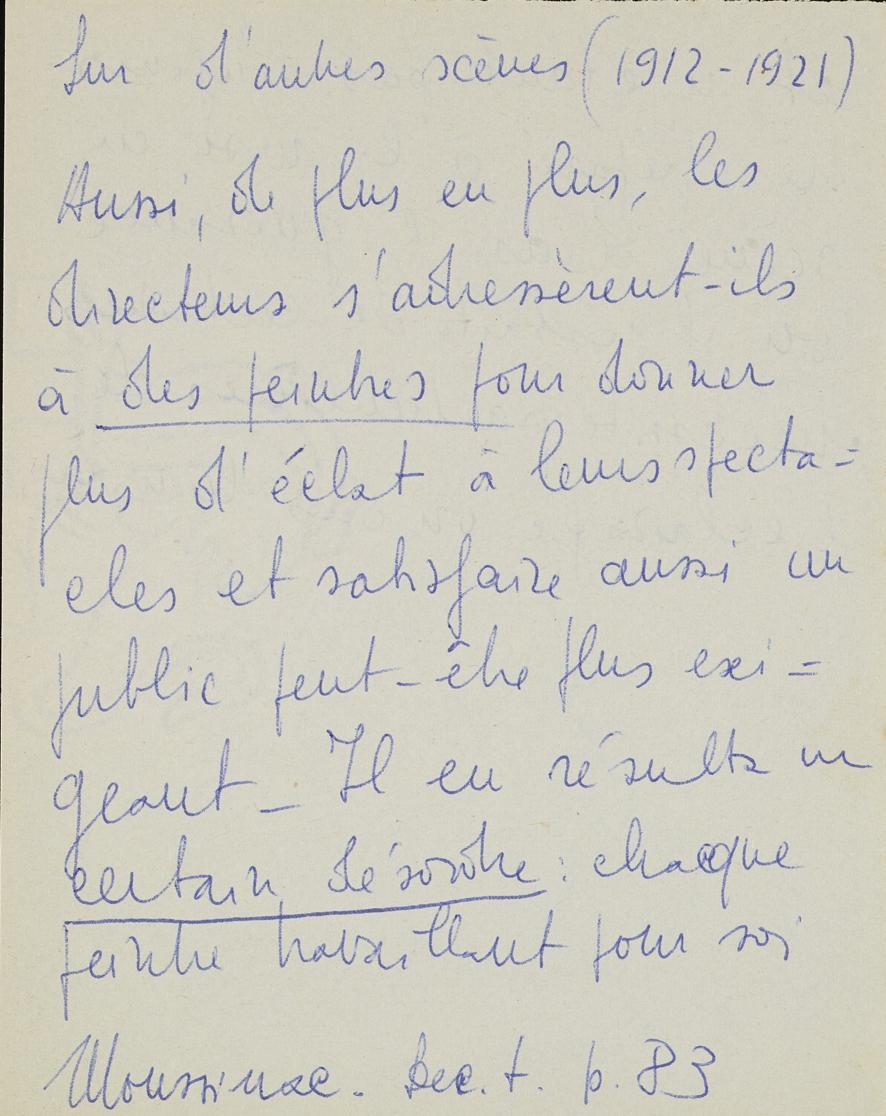 Sur d'autres scènes (1912-1921)
Aussi, de plus en plus, les
directeurs s'adressèrent-ils
à des peintres pour donner
plus d'éclat à leurs specta=
cles et satisfaire aussi un
public peut-être plus exi=
geant - Il en résulta un
certain désordre : chaque
peintre travaillant pour soi
Moussinac. Dec. t. p. 83